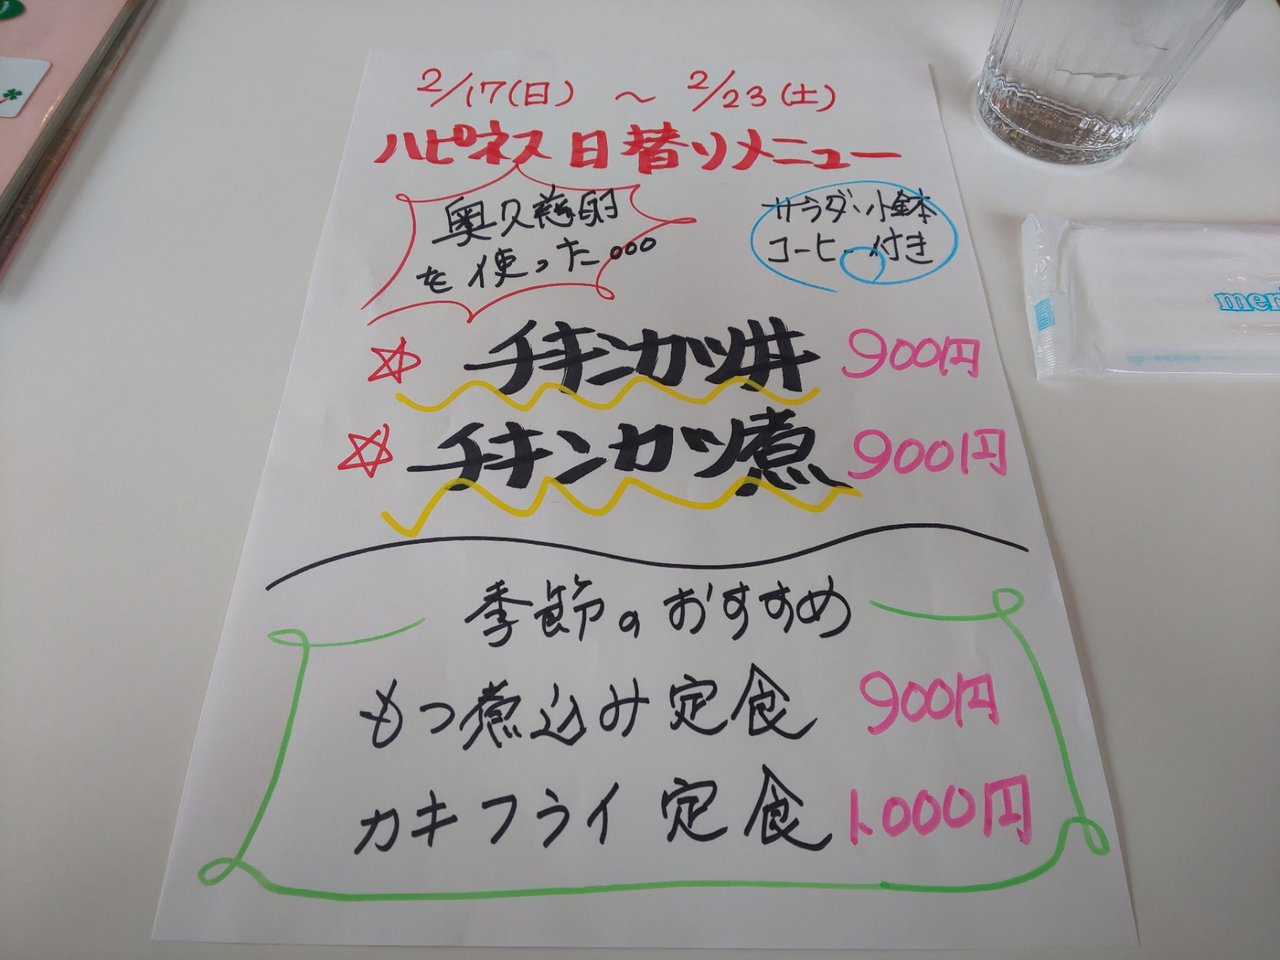 2/17(日) ～ 2/23(土)
ハピネス 日替りメニュー
奥久慈卵
を使った...
サラダ・小鉢
コーヒー付き
☆ チキンカツ丼 900円
☆ チキンカツ煮 900円
季節のおすすめ
もつ煮込み定食 900円
カキフライ定食 1.000円